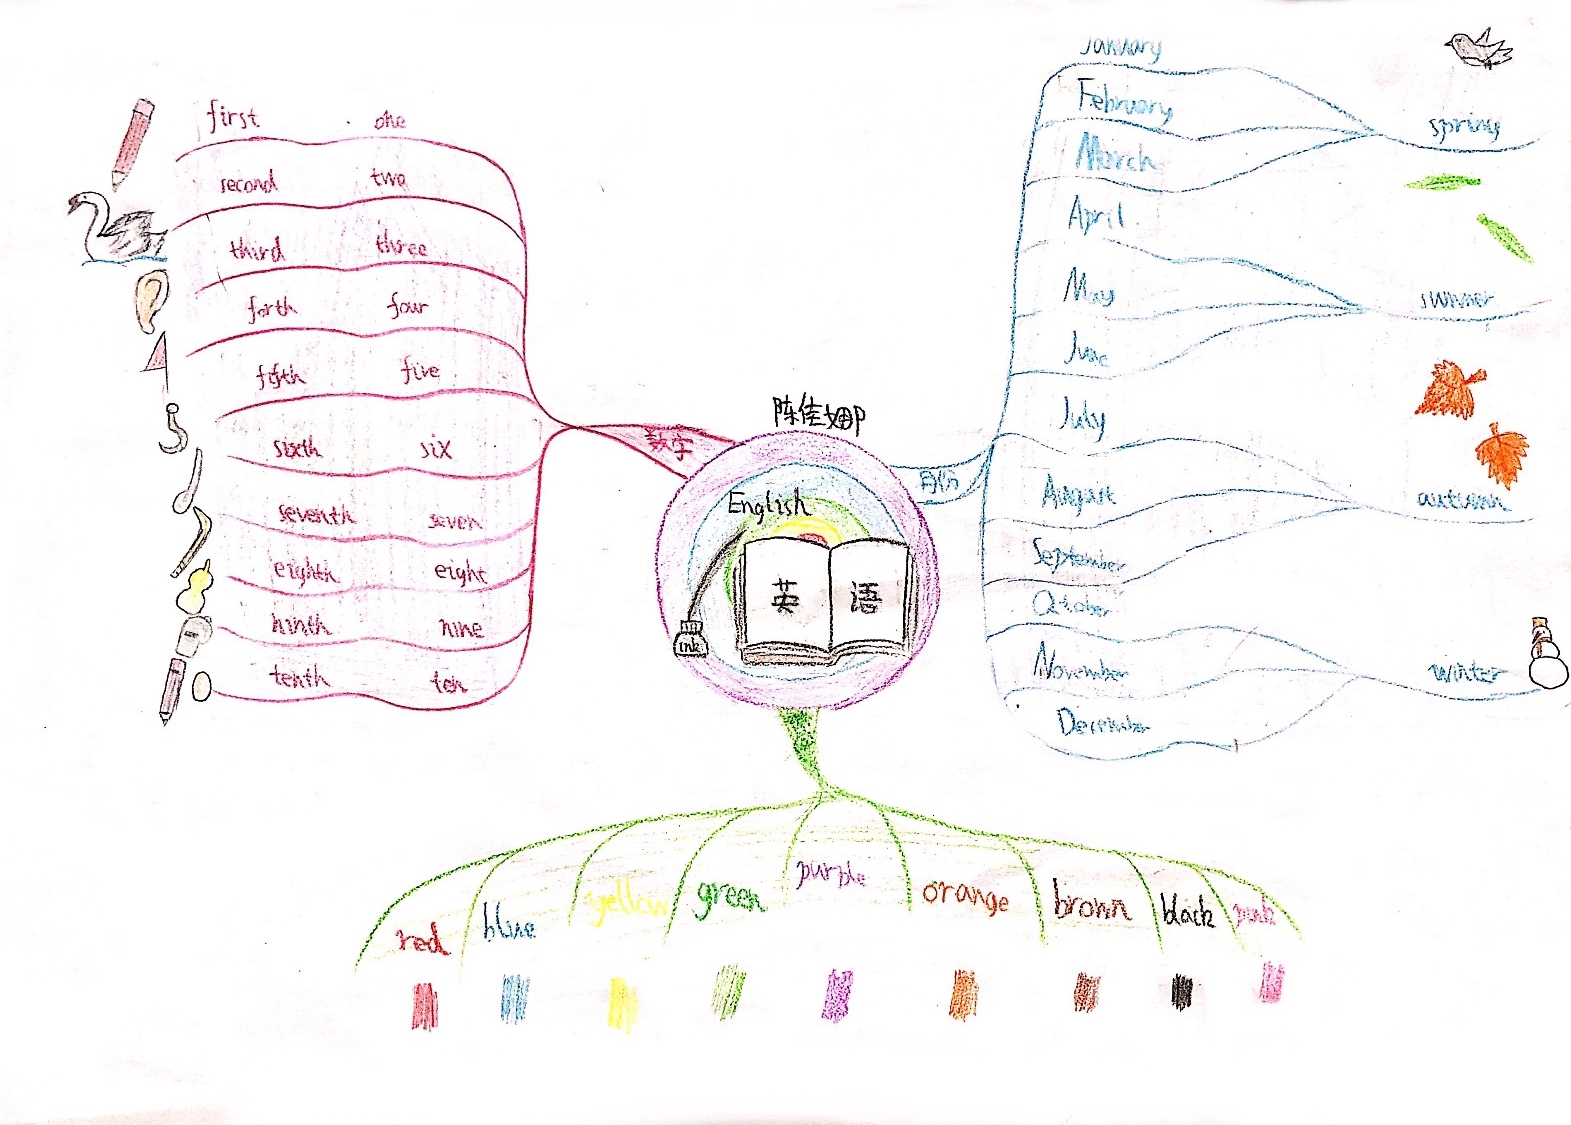 陈佳妍
English
英 语
ink
数字
first one
second two
third three
forth four
fifth five
sixth six
seventh seven
eighth eight
ninth nine
tenth ten
月份
January
February
March
spring
April
May
June
summer
July
August
September
autumn
October
November
December
winter
red
blue
yellow
green
purple
orange
brown
black
pink